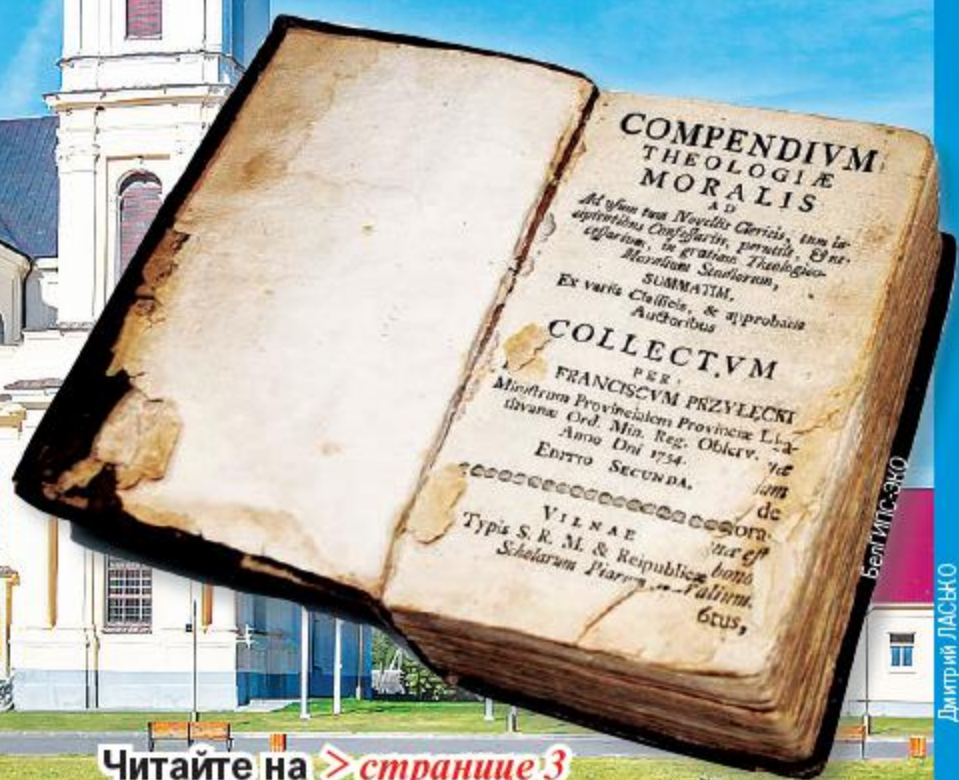 COMPENDIVM
THEOLOGIÆ
MORALIS
AD
Ad usum tum Novellis Clericis, tum in-
cipientibus Confessariis, perutile, & ne-
cessarium, in gratiam Theologico-
Moralium Studiorum,
SUMMATIM,
Ex variis Classicis, & approbatis
Auctoribus
COLLECT.VM
PER,
FRANCISCVM PRZYŁĘCKI
Ministrum Provincialem Provinciæ
Ord. Min. Reg. Observ.
Anno Dni 1754.
EDITIO SECUNDA.
iam
de
ora-
VILNAE
næ est
Typis S. R. M. & Reipublicæ bono
Scholarum Piarum
6tus,
БелГИПС-ЭКО
Дмитрий ЛАСЬКО
Читайте на > странице 3